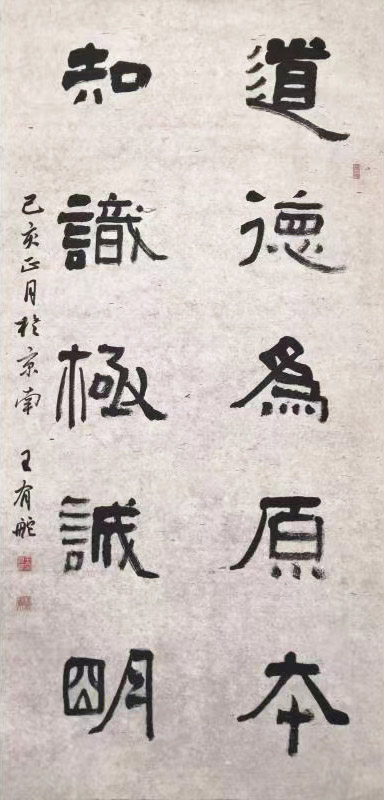 道德為原本
知識極誠明
己亥正月於京南 王有